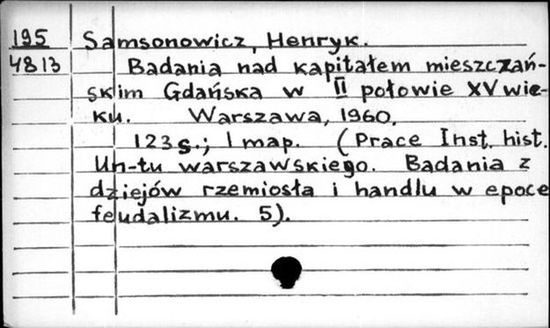 195 Samsonowicz, Henryk.
4813 Badania nad kapitałem mieszczań-
skim Gdańska w II połowie XV wie-
ku. Warszawa, 1960.
123 s.; 1 map. (Prace Inst. hist.
Un-tu warszawskiego. Badania z
dziejów rzemiosła i handlu w epoce
feudalizmu. 5).